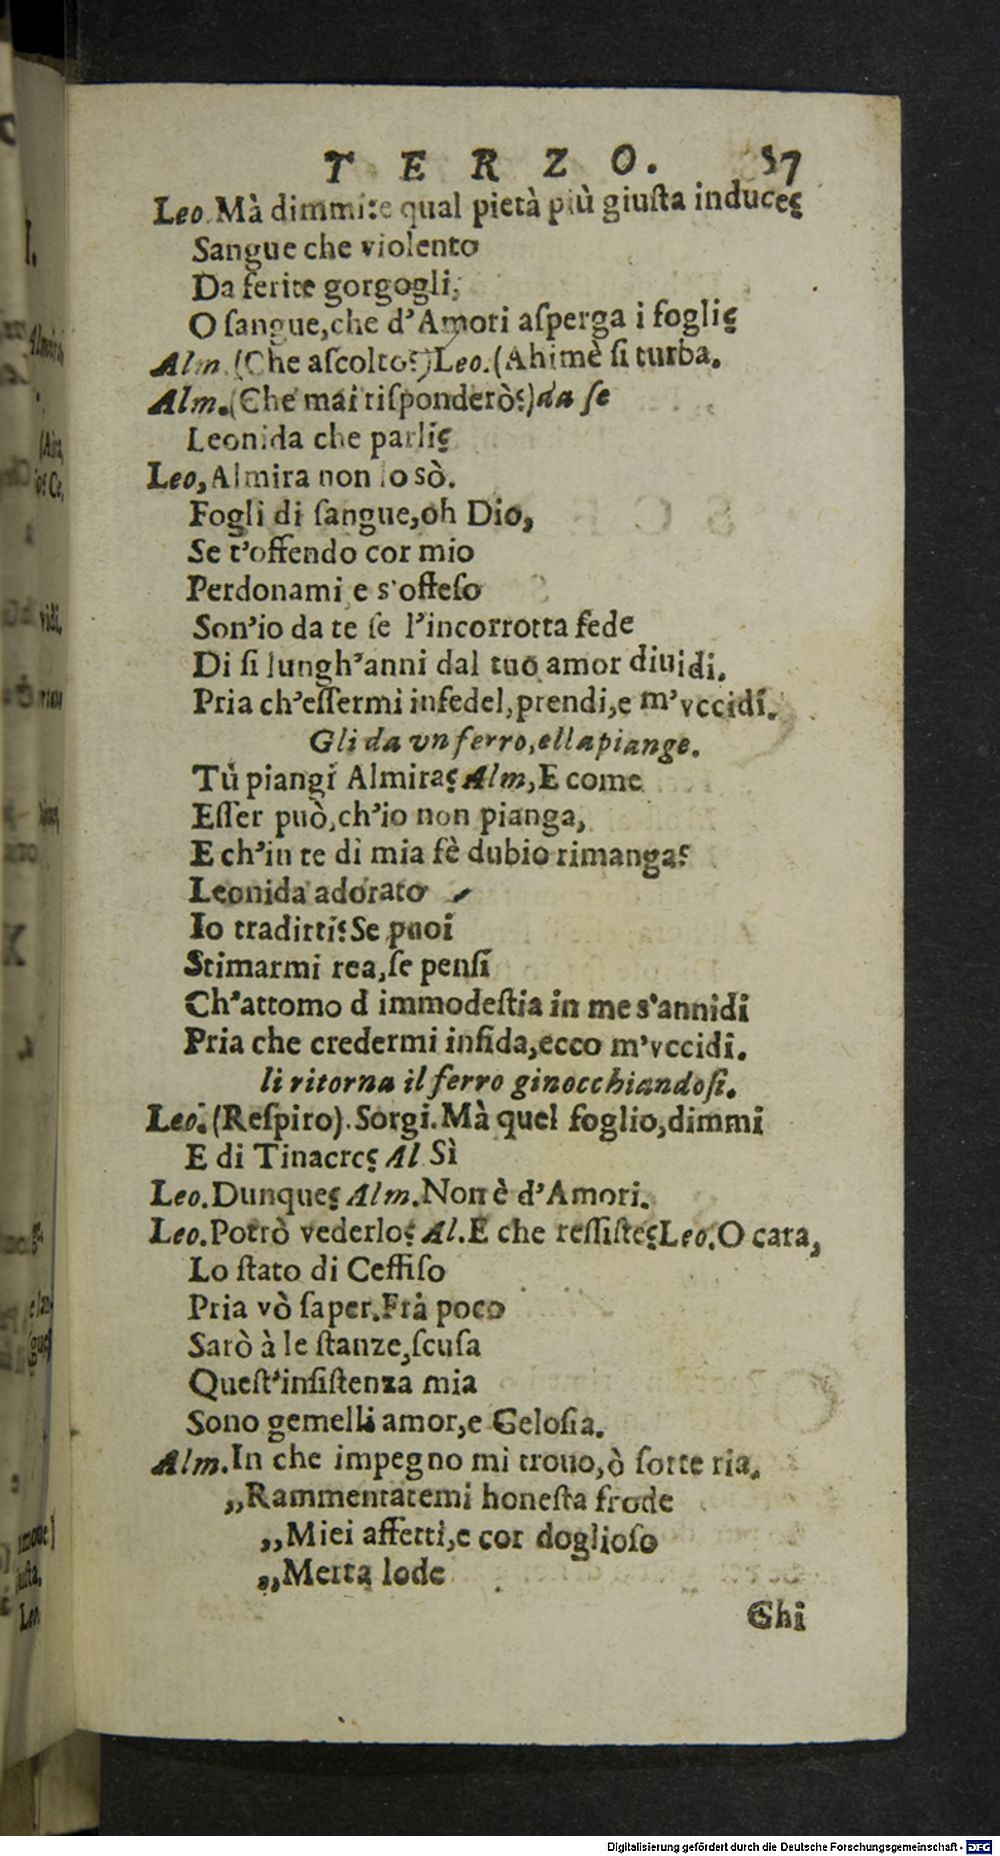 TERZO. 57
Leo. Mà dimmi: e qual pietà più giuſta induce?
Sangue che violento
Da ferite gorgogli,
O ſangue, che d'Amori aſperga i fogli?
Alm. (Che aſcolto?) Leo. (Ahimè ſi turba.
Alm. (Che mai riſponderò?) da ſe
Leonida che parli?
Leo, Almira non lo sò.
Fogli di ſangue, oh Dio,
Se t'offendo cor mio
Perdonami, e s'offeſo
Son'io da te ſe l'incorrotta fede
Di ſi lungh'anni dal tuo amor diuidi.
Pria ch'eſſermi infedel, prendi, e m'vccidi.
Gli da vn ferro, ella piange.
Tù piangi Almira? Alm, E come
Eſſer può, ch'io non pianga,
E ch'in te di mia fè dubio rimanga?
Leonida adorato
Io tradirti? Se puoi
Stimarmi rea, ſe penſi
Ch'attomo d immodeſtia in me s'annidi
Pria che credermi infida, ecco m'vccidi.
li ritorna il ferro ginocchiandoſi.
Leo. (Reſpiro). Sorgi. Mà quel foglio, dimmi
E di Tinacre? Al Sì
Leo. Dunque? Alm. Non è d'Amori.
Leo. Potrò vederlo? Al. E che reſſiſte? Leo. O cara,
Lo ſtato di Ceffiſo
Pria vò ſaper. Frà poco
Sarò à le ſtanze, ſcuſa
Queſt'inſiſtenza mia
Sono gemelli amor, e Geloſia.
Alm. In che impegno mi trouo, ò ſorte ria.
,,Rammentatemi honeſta frode
,,Miei affetti, e cor doglioſo
,,Merta lode
Chi
Digitalisierung gefördert durch die Deutsche Forschungsgemeinschaft - DFG